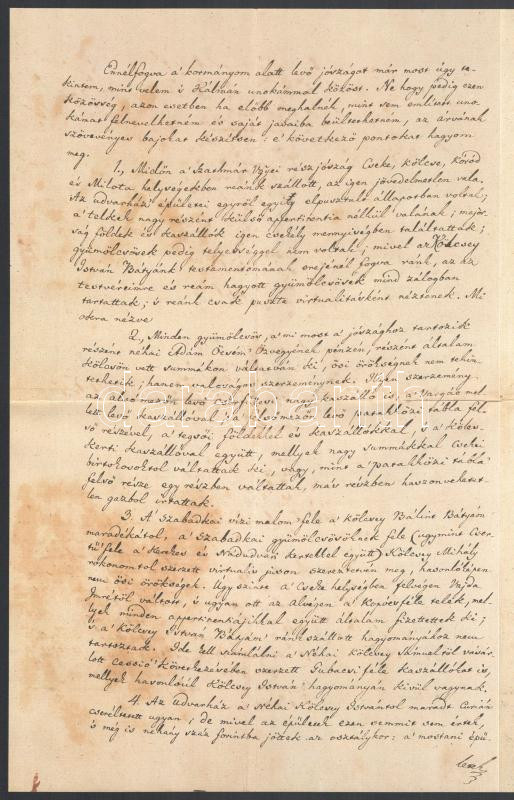 Ennélfogva a' kormányom alatt levő jószágot már most úgy te-
kintem, mint velem 's Kálmán unokámmal közöst. Ne hogy pedig ezen
közösség, azon esetben ha előbb meghalnék, mint sem említett uno-
kámat felnevelhetném és saját javaiba beültethetném, az árvának
szövevényes bajokat készítsen: e' következő pontokat hagyom
meg.
1., Midőn a' Szathmár részjószág Cseke, Kölcse, Kóród
és Milota helységekben reánk szállott, az igen jövedelmetlen vala.
Az udvarház' épületei egyről egyig elpusztult állapotban voltak;
a' telkek nagy részént külső appertinentia nélkül valának; major-
ság földek és kaszállók igen csekély mennyiségben találtattak;
gyümölcsösök pedig teljességgel nem voltak; mivel a' Kölcsey
István Bátyánk' testamentomának erejénél fogva ránk, az az
testvéreimre és reám hagyott gyümölcsösök mind zálogban
tartattak; 's reánk csak puszta virtualitásként néztenek. Mi
okra nézve
2., Minden gyümölcsös, a' mi most a' jószághoz tartozik
részént néhai Ádám Öcsém' Özvegyének pénzén, részént általam
kölcsön vett summákon váltatván ki, ősi örökségnek nem tekin-
tethetik; hanem valóságos szerzeménynek. Illyen szerzemény
az alsó mezőn levő nagy kaszálló is, a' mel-
lett levő kaszállóval; a' felső mezőn levő patakközi tábla fel-
ső részével, a' tagosi földekkel és kaszállókkal, 's a'
kerti kaszállóval együtt, mellyek nagy summákkal Csekei
birtokosoktól váltattak ki, vagy, mint a' patakközi tábla'
felső része egy részben váltattak, más részben haszonvehetet-
len gazból irtattak.
3. A' Szabadkai vizi malom' fele a' Kölcsey Bálint Bátyám'
maradékától, a' Szabadkai gyümölcsösöknek fele (ugymint
fele a' Kerekes és Nádudvari kertekkel együtt) Kölcsey Mihály
rokonomtól szerzett virtualis jusson szereztetvén meg, hasonlólag
nem ősi örökségek. Ugy szinte a' Cseke helységben felvégen Vajda
Imrétől váltott, 's ugyan ott az alvégen a' féle telek, mel-
lyek minden appertinentiájikkal együtt általam fizetettek ki;
's a' Kölcsey István Bátyám' ránk szállott hagyományához nem
tartoztak. Ide kell számlálni a' Néhai Kölcsey Sámueltől vásár-
lott cessió következésében szerzett Gubacsi féle kaszállókat is,
mellyek hasonlóúl Kölcsey István' hagyományán kívül vagynak.
4. Az udvarház a' Néhai Kölcsey Istvántól maradt Curián
cseréltetett ugyan; de mivel az épületek ezen semmit sem értek,
's még is néhány száz forintba jöttek az osztálykor: a' mostani épü-